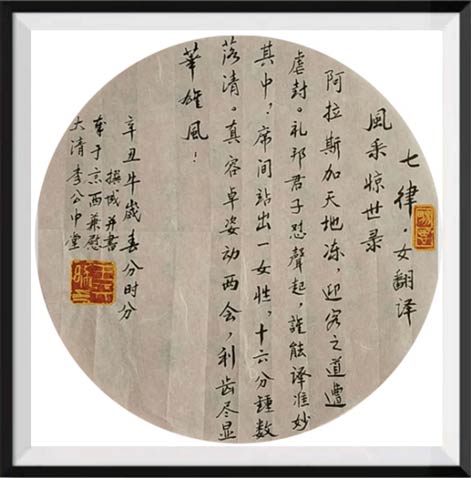 七律·女翻译
風采惊世录
阿拉斯加天地冻,迎客之道遭
虐封。礼邦君子怼聲起,誰能译准妙
其中?席间站出一女性,十六分鍾数
落清。真容卓姿动两会,利齿尽显
華雄風!
辛丑牛歲春分时分
撰并書
于京西兼慰
大清李公中堂